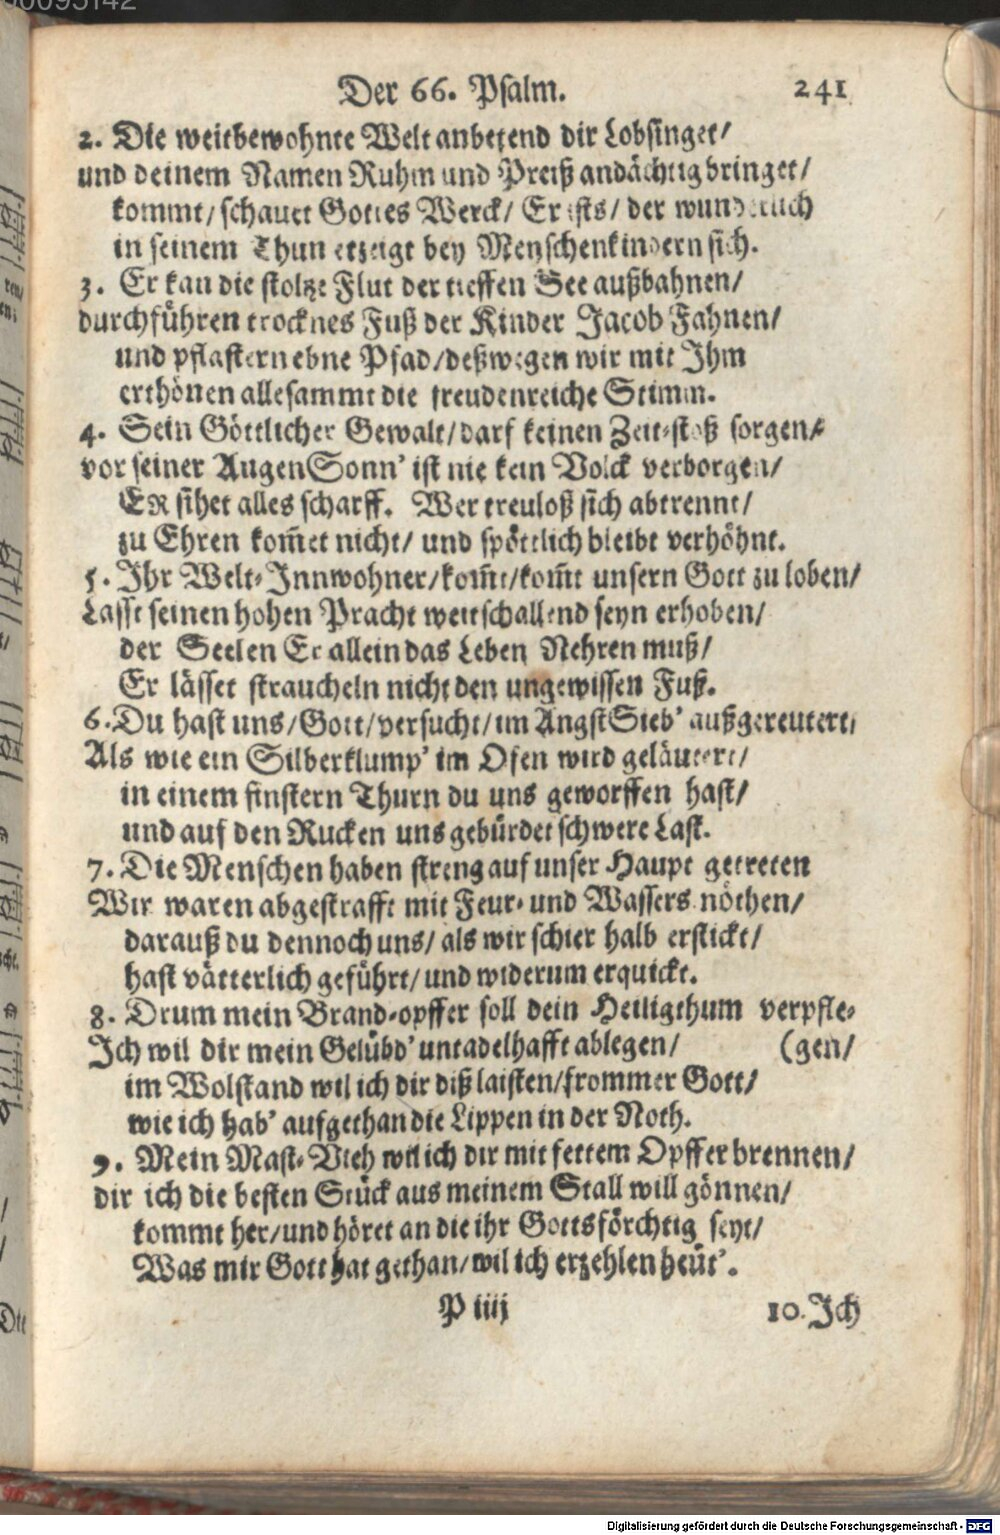 Der 66. Psalm. 241
2. Die weitbewohnte Welt anbetend dir Lobsinget/
und deinem Namen Ruhm und Preiß andächtig bringet/
kommt/ schauet Gottes Werck/ Er ists/ der wunderlich
in seinem Thun erzeigt bey Menschenkindern sich.
3. Er kan die stoltze Flut der tieffen See außbahnen/
durchführen trocknes Fuß der Kinder Jacob Fahnen/
und pflastern ebne Pfad/ deßwegen wir mit Ihm
erthönen allesammt die freudenreiche Stimm.
4. Sein Göttlicher Gewalt/ darf keinen Zeit-stoß sorgen/
vor seiner Augen Sonn' ist nie kein Volck verborgen/
ER sihet alles scharff. Wer treuloß sich abtrennt/
zu Ehren kom̄et nicht/ und spöttlich bleibt verhöhnt.
5. Ihr Welt-Innwohner/ kom̄t/ kom̄t unsern Gott zu loben/
Lasst seinen hohen Pracht weitschallend seyn erhoben/
der Seelen Er allein das Leben Nehren muß/
Er lässet straucheln nicht den ungewissen Fuß.
6. Du hast uns/ Gott/ versucht/ im Angst Sieb' außgereutert/
Als wie ein Silberklump' im Ofen wird geläutert/
in einem finstern Thurn du uns geworffen hast/
und auf den Rucken uns gebürdet schwere Last.
7. Die Menschen haben streng auf unser Haupt getreten
Wir waren abgestrafft mit Feur- und Wassers nöthen/
darauß du dennoch uns/ als wir schier halb erstickt/
hast vätterlich geführt/ und widerum erquickt.
8. Drum mein Brand-opffer soll dein Heiligthum verpfle-
Ich wil dir mein Gelübd' untadelhafft ablegen/ (gen/
im Wolstand wil ich dir diß laisten/ frommer Gott/
wie ich hab' aufgethan die Lippen in der Noth.
9. Mein Mast-Vieh wil ich dir mit fettem Opffer brennen/
dir ich die besten Stück aus meinem Stall will gönnen/
kommt her/ und höret an die ihr Gottsförchtig seyt/
Was mir Gott hat gethan/ wil ich erzehlen heüt'.
P iiij 10. Ich
Digitalisierung gefördert durch die Deutsche Forschungsgemeinschaft - DFG